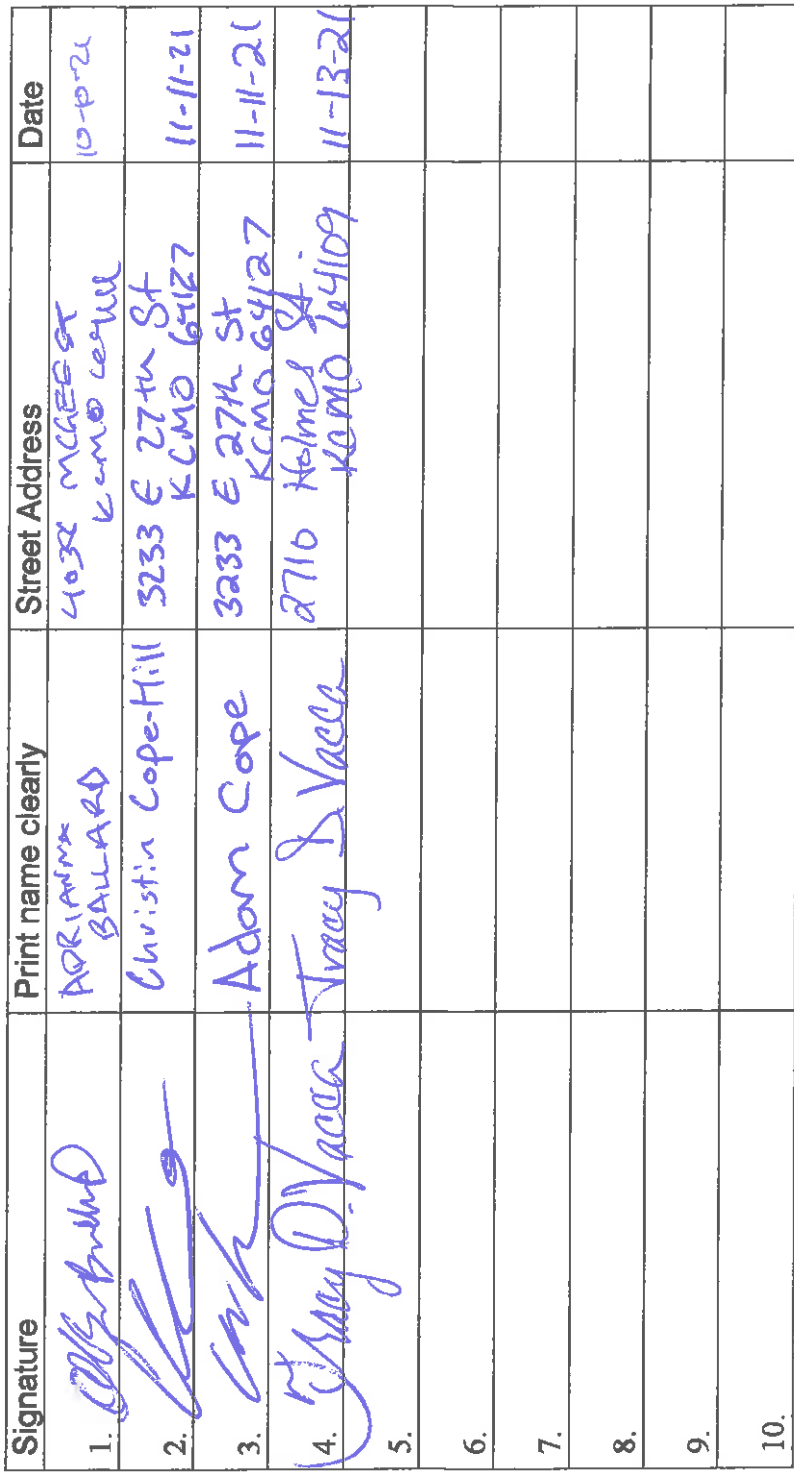 Signature Print name clearly Street Address Date
1. ADRIANNA BALLARD MCGEE ST KCMO
2. Christin Cope-Hill 3233 E 27th St KCMO 64127 11-11-21
3. Adam Cope 3233 E 27th St KCMO 64127 11-11-21
4. Tracy D. Vacca Tracy D Vacca 2710 Holmes St. KCMO 64109 11-13-21
5.
6.
7.
8.
9.
10.